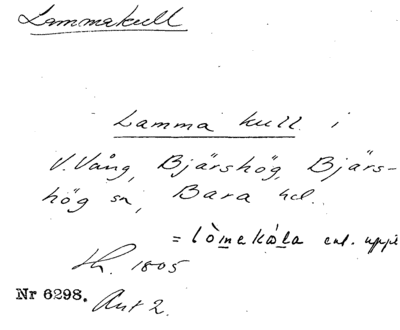 Lammakull
Lamma kull i
V. Vång, Bjärshög, Bjärs-
hög sn, Bara hd.
= lòmekála enl. uppt
Sk. 1805
Nr 6298. Art 2.